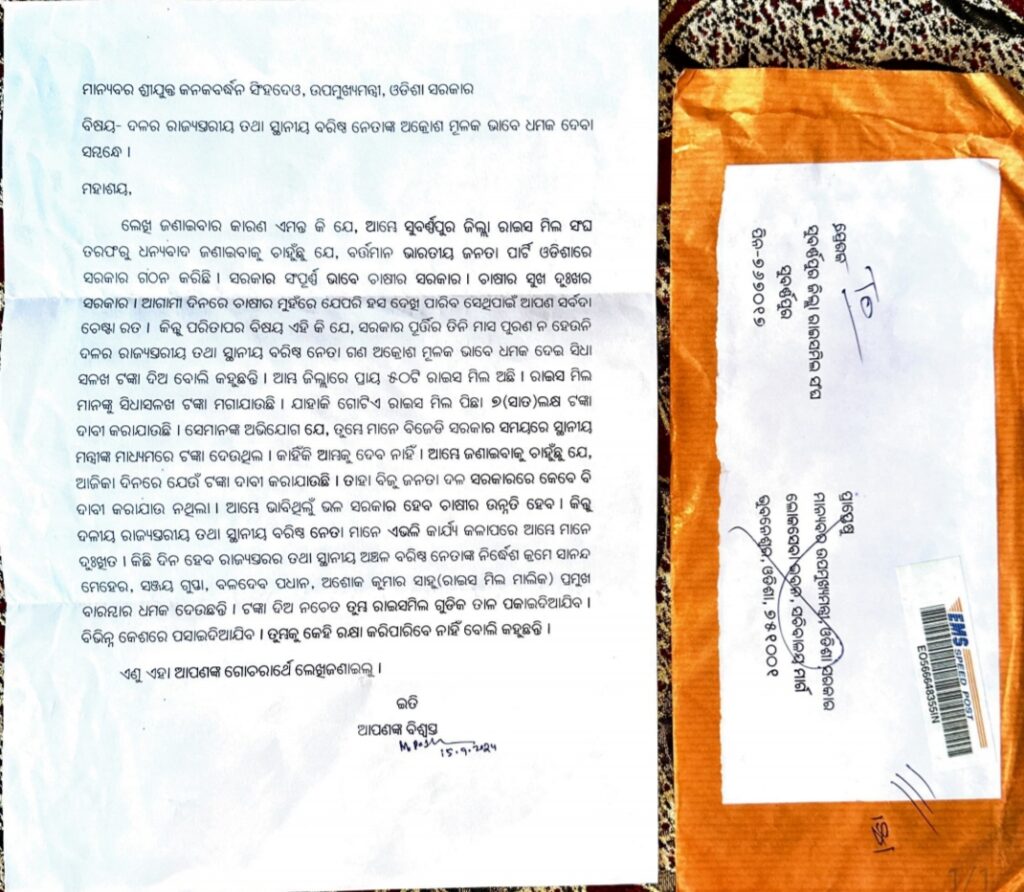 ମାନ୍ୟବର ଶ୍ରୀଯୁକ୍ତ କନକବର୍ଦ୍ଧନ ସିଂହଦେଓ, ଉପମୁଖ୍ୟମନ୍ତ୍ରୀ, ଓଡିଶା ସରକାର
ବିଷୟ- ଦଳର ରାଜ୍ୟସ୍ତରୀୟ ତଥା ସ୍ଥାନୀୟ ବରିଷ୍ଠ ନେତାଙ୍କ ଅକ୍ରୋଶ ମୂଳକ ଭାବେ ଧମକ ଦେବା
ସମ୍ବନ୍ଧେ ।
ମହାଶୟ,
ଲେଖି ଜଣାଇବାର କାରଣ ଏମନ୍ତ କି ଯେ, ଆମ୍ଭେ ସୁବର୍ଣ୍ଣପୁର ଜିଲ୍ଲା ରାଇସ ମିଲ ସଂଘ
ତରଫରୁ ଧନ୍ୟବାଦ ଜଣାଇବାକୁ ଚାହୁଁଛୁ ଯେ, ବର୍ତ୍ତମାନ ଭାରତୀୟ ଜନତା ପାର୍ଟି ଓଡିଶାରେ
ସରକାର ଗଠନ କରିଛି । ସରକାର ସଂପୂର୍ଣ୍ଣ ଭାବେ ଚାଷୀର ସରକାର । ଚାଷୀର ସୁଖ ଦୁଃଖର
ସରକାର । ଆଗାମୀ ଦିନରେ ଚାଷୀର ମୁହଁରେ ଯେପରି ହସ ଦେଖି ପାରିବ ସେଥିପାଇଁ ଆପଣ ସର୍ବଦା
ଚେଷ୍ଟା ରତ । କିନ୍ତୁ ପରିତାପର ବିଷୟ ଏହି କି ଯେ, ସରକାର ପୂର୍ତ୍ତିର ତିନି ମାସ ପୁରଣ ନ ହେଉନି
ଦଳର ରାଜ୍ୟସ୍ତରୀୟ ତଥା ସ୍ଥାନୀୟ ବରିଷ୍ଠ ନେତା ଗଣ ଅକ୍ରୋଶ ମୂଳକ ଭାବେ ଧମକ ଦେଇ ସିଧା
ସଳଖ ଟଙ୍କା ଦିଅ ବୋଲି କହୁଛନ୍ତି । ଆମ୍ଭ ଜିଲ୍ଲାରେ ପ୍ରାୟ ୫୦ଟି ରାଇସ ମିଲ ଅଛି । ରାଇସ ମିଲ
ମାନଙ୍କୁ ସିଧାସଳଖ ଟଙ୍କା ମଗାଯାଉଛି । ଯାହାକି ଗୋଟିଏ ରାଇସ ମିଲ ପିଛା ୭(ସାତ)ଲକ୍ଷ ଟଙ୍କା
ଦାବୀ କରାଯାଉଛି । ସେମାନଙ୍କ ଅଭିଯୋଗ ଯେ, ତୁମ୍ଭେ ମାନେ ବିଜେଡି ସରକାର ସମୟରେ ସ୍ଥାନୀୟ
ମନ୍ତ୍ରୀଙ୍କ ମାଧ୍ୟମରେ ଟଙ୍କା ଦେଉଥିଲ । କାହିଁକି ଆମ୍ଭକୁ ଦେବ ନାହିଁ । ଆମ୍ଭେ ଜଣାଇବାକୁ ଚାହୁଁଛୁ ଯେ,
ଆଜିକା ଦିନରେ ଯେଉଁ ଟଙ୍କା ଦାବୀ କରାଯାଉଛି । ତାହା ବିଜୁ ଜନତା ଦଳ ସରକାରରେ କେବେ ବି
ଦାବୀ କରାଯାଉ ନଥିଲା । ଆମ୍ଭେ ଭାବିଥିଲୁଁ ଭଳ ସରକାର ହେବ ଚାଷୀର ଉନ୍ନତି ହେବ । କିନ୍ତୁ
ଦଳୀୟ ରାଜ୍ୟସ୍ତରୀୟ ତଥା ସ୍ଥାନୀୟ ବରିଷ୍ଠ ନେତା ମାନେ ଏଭଳି କାର୍ଯ୍ୟ କଳାପରେ ଆମ୍ଭେ ମାନେ
ଦୁଃଖିତ । କିଛି ଦିନ ହେବ ରାଜ୍ୟସ୍ତରର ତଥା ସ୍ଥାନୀୟ ଅଞ୍ଚଳ ବରିଷ୍ଠ ନେତାଙ୍କ ନିର୍ଦ୍ଧେଶ କ୍ରମେ ସାନନ୍ଦ
ମେହେର, ସଞ୍ଜୟ ଗୁପ୍ତା, ବଳଦେବ ପଧାନ, ଅଶୋକ କୁମାର ସାହୁ(ରାଇସ ମିଲ ମାଲିକ) ପ୍ରମୁଖ
ବାରମ୍ବାର ଧମକ ଦେଉଛନ୍ତି । ଟଙ୍କା ଦିଅ ନଚେତ ତୁମ୍ଭ ରାଇସମିଲ ଗୁଡିକ ତାଳ ପକାଇଦିଆଯିବ ।
ବିଭିନ୍ନ କେଶରେ ପସାଇଦିଆଯିବ । ତୁମ୍ଭକୁ କେହି ରକ୍ଷା କରିପାରିବେ ନାହିଁ ବୋଲି କହୁଛନ୍ତି ।
ଏଣୁ ଏହା ଆପଣଙ୍କ ଗୋଚରାର୍ଥେ ଲେଖିଜଣାଇଲୁ ।
ଇତି
ଆପଣଙ୍କ ବିଶ୍ୱସ୍ତ
15.9.2024
ପ୍ରେରକ
ସୁବର୍ଣ୍ଣପୁର ଜିଲ୍ଲା ରାଇସମିଲ ସଂଘ
ସୁବର୍ଣ୍ଣପୁର
ପିନ-୭୬୭୦୧୭
To
ମାନ୍ୟବର ଉପମୁଖ୍ୟମନ୍ତ୍ରୀ, ଓଡିଶା ସରକାର
ଲୋକସେବା ଭବନ, ସଚିବାଳୟ ମାର୍ଗ
ଭୁବନେଶ୍ୱର, ଓଡିଶା, ୭୫୧୦୦୧
EMS
SPEED POST
EO566648355IN
1/1